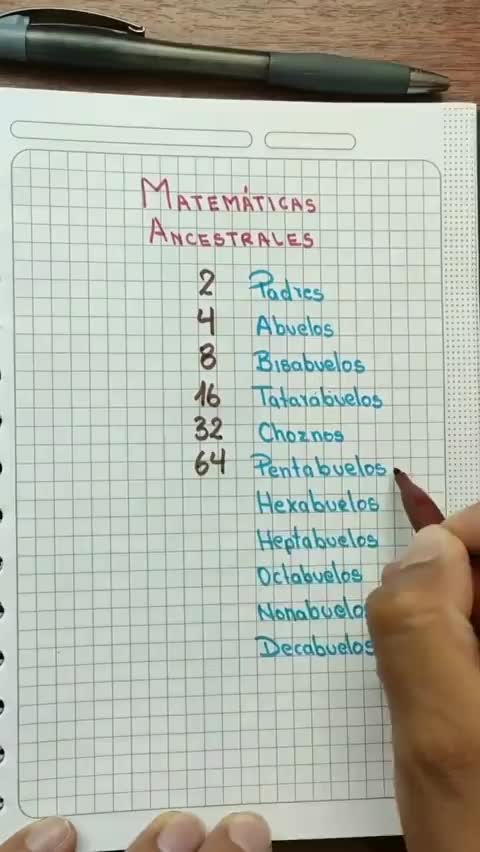 MATEMÁTICAS
ANCESTRALES
2 Padres
4 Abuelos
8 Bisabuelos
16 Tatarabuelos
32 Choznos
64 Pentabuelos
Hexabuelos
Heptabuelos
Octabuelos
Nonabuelo
Decabuelos